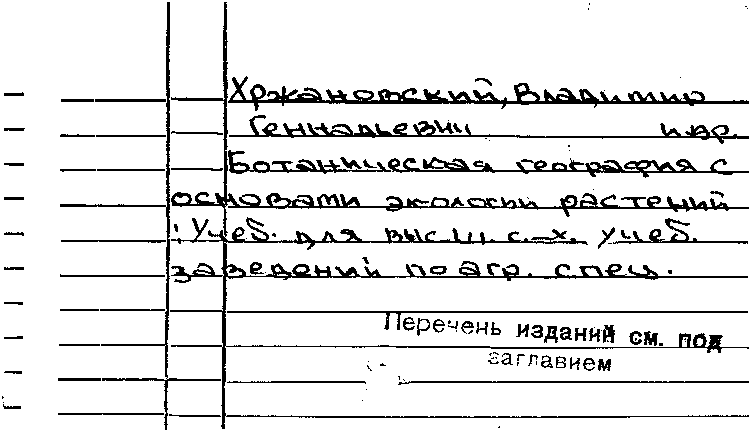 Хржановский, Владимир
Геннадьевич и др.
Ботаническая география с
основами экологии растений
: Учеб. для высш. с.-х. учеб.
заведений по агр. спец.
Перечень изданий см. под
заглавием